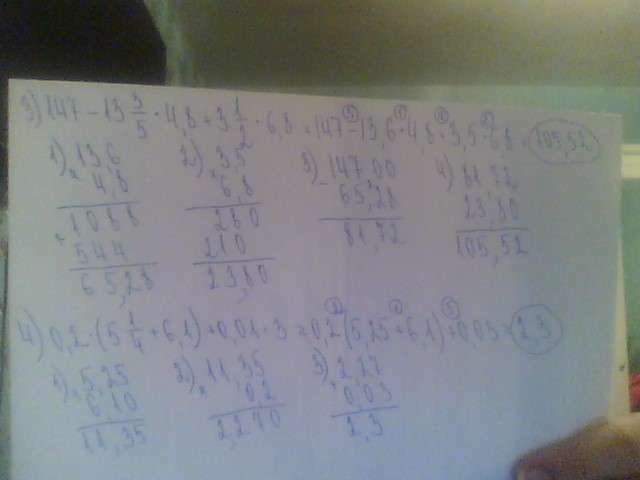 3) 147 - 13 3/5 · 4,8 + 3 1/2 · 6,8 = 147 - 13,6 · 4,8 + 3,5 · 6,8 = 105,52
1) 13,6 2) 3,5 3) 147,00 4) 81,72
× 4,8 × 6,8 - 65,28 23,80
1088 280 81,72 105,52
+ 544 210
65,28 23,80
4) 0,2 · (5 1/4 + 6,1) + 0,01 · 3 = 0,2 (5,25 + 6,1) + 0,03 = 2,3
1) 5,25 2) 11,35 3) 2,27
+ 6,10 × 0,2 + 0,03
11,35 2,270 2,3